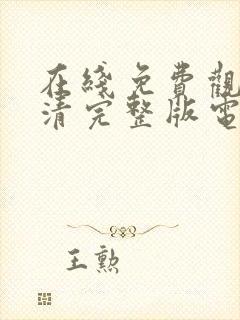 在綫免費觀
清完整版電
王勲